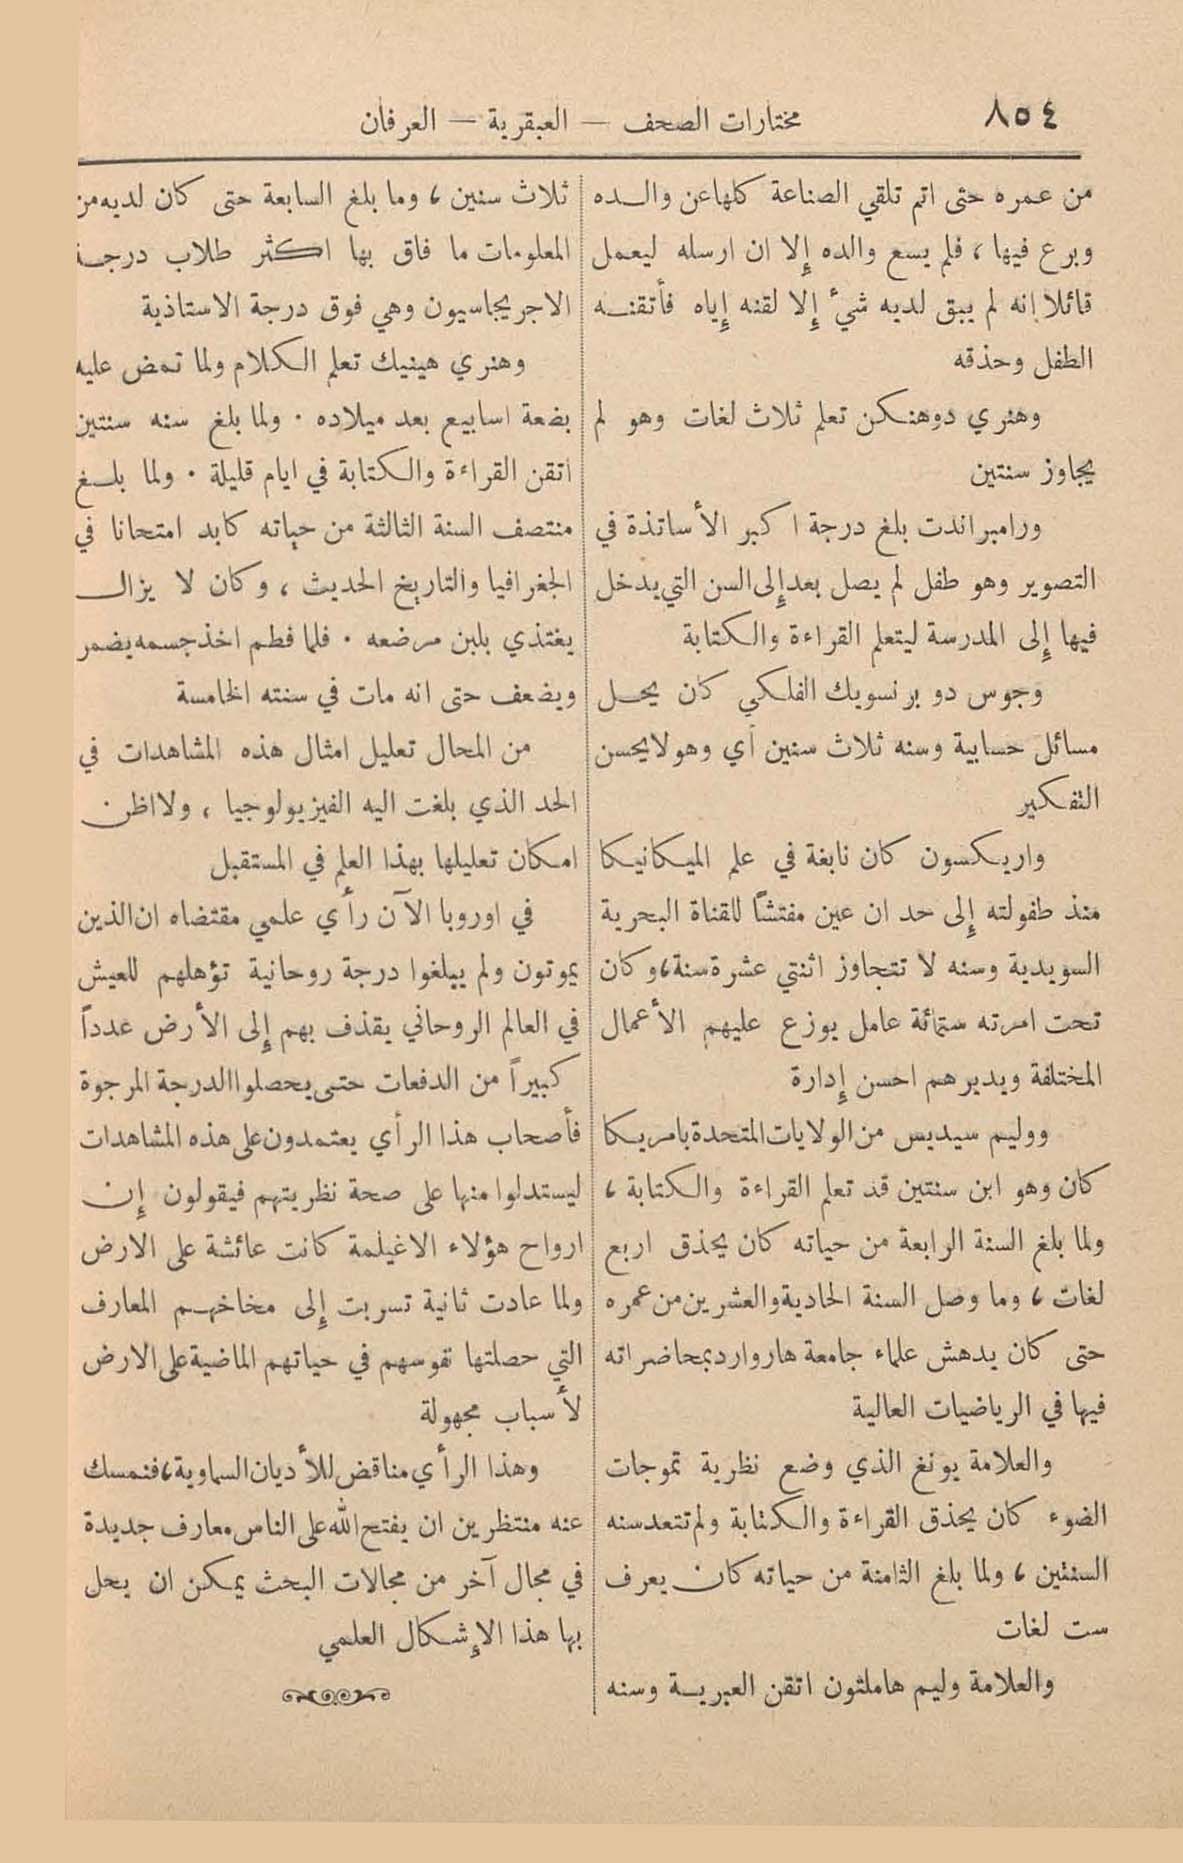 ٨٥٤
مختارات الصحف — العبقرية — العرفان
من عمره حتى اتم تلقي الصناعة كلها عن والـده
وبرع فيها ، فلم يسع والده إلا ان ارسله ليعمل
قائلا إنه لم يبق لديه شيء إلا لقنه إياه فأتقنـه
الطفل وحذقه
وهنري دوهنكن تعلم ثلاث لغات وهو لم
يجاوز سنتين
ورامبراندت بلغ درجة اكبر الأساتذة في
التصوير وهو طفل لم يصل بعد إلى السن التي يدخل
فيها إلى المدرسة ليتعلم القراءة والكتابة
وجوس دو برنسويك الفلكي كان يحـل
مسائل حسابية وسنه ثلاث سنين أي وهو لا يحسن
التفكير
واريكسون كان نابغة في علم الميكانيكا
منذ طفولته إلى حد ان عين مفتشاً للقناة البحرية
السويدية وسنه لا تتجاوز اثنتي عشرة سنة ، وكان
تحت امرته ستمائة عامل يوزع عليهم الأعمال
المختلفة ويديرهم احسن إدارة
ووليم سيديس من الولايات المتحدة بامريكا
كان وهو ابن سنتين قد تعلم القراءة والكتابة ،
ولما بلغ السنة الرابعة من حياته كان يحذق اربع
لغات ، وما وصل السنة الحادية والعشرين من عمره
حتى كان يدهش علماء جامعة هاروارد بمحاضراته
فيها في الرياضيات العالية
والعلامة يونغ الذي وضع نظرية تموجات
الضوء كان يحذق القراءة والكتابة ولم تتعد سنه
السنتين ، ولما بلغ الثامنة من حياته كان يعرف
ست لغات
والعلامة وليم هاملتون اتقن العبريـة وسنه
ثلاث سنين ، وما بلغ السابعة حتى كان لديه من
المعلومات ما فاق بها اكثر طلاب درجـة
الاجريجاسيون وهي فوق درجة الاستاذية
وهنري هينيك تعلم الكلام ولما تمض عليه
بضعة اسابيع بعد ميلاده . ولما بلغ سنه سنتين
اتقن القراءة والكتابة في ايام قليلة . ولما بلـغ
منتصف السنة الثالثة من حياته كابد امتحانا في
الجغرافيا والتاريخ الحديث ، وكان لا يزال
يغتذي بلبن مرضعه . فلما فطم اخذ جسمه يضمر
ويضعف حتى انه مات في سنته الخامسة
من المحال تعليل امثال هذه المشاهدات في
الحد الذي بلغت اليه الفيزيولوجيا ، ولا اظن
امكان تعليلها بهذا العلم في المستقبل
في اوروبا الآن رأي علمي مقتضاه ان الذين
يموتون ولم يبلغوا درجة روحانية تؤهلهم للعيش
في العالم الروحاني يقذف بهم إلى الأرض عدداً
كبيراً من الدفعات حتى يحصلوا الدرجة المرجوة
فأصحاب هذا الرأي يعتمدون على هذه المشاهدات
ليستدلوا منها على صحة نظريتهم فيقولون إن
ارواح هؤلاء الاغيلمة كانت عائشة على الارض
ولما عادت ثانية تسربت إلى مخاخهم المعارف
التي حصلتها نفوسهم في حياتهم الماضية على الارض
لأسباب مجهولة
وهذا الرأي مناقض للأديان السماوية ، فنمسك
عنه منتظرين ان يفتح الله على الناس معارف جديدة
في مجال آخر من مجالات البحث يمكن ان يحل
بها هذا الإشكال العلمي